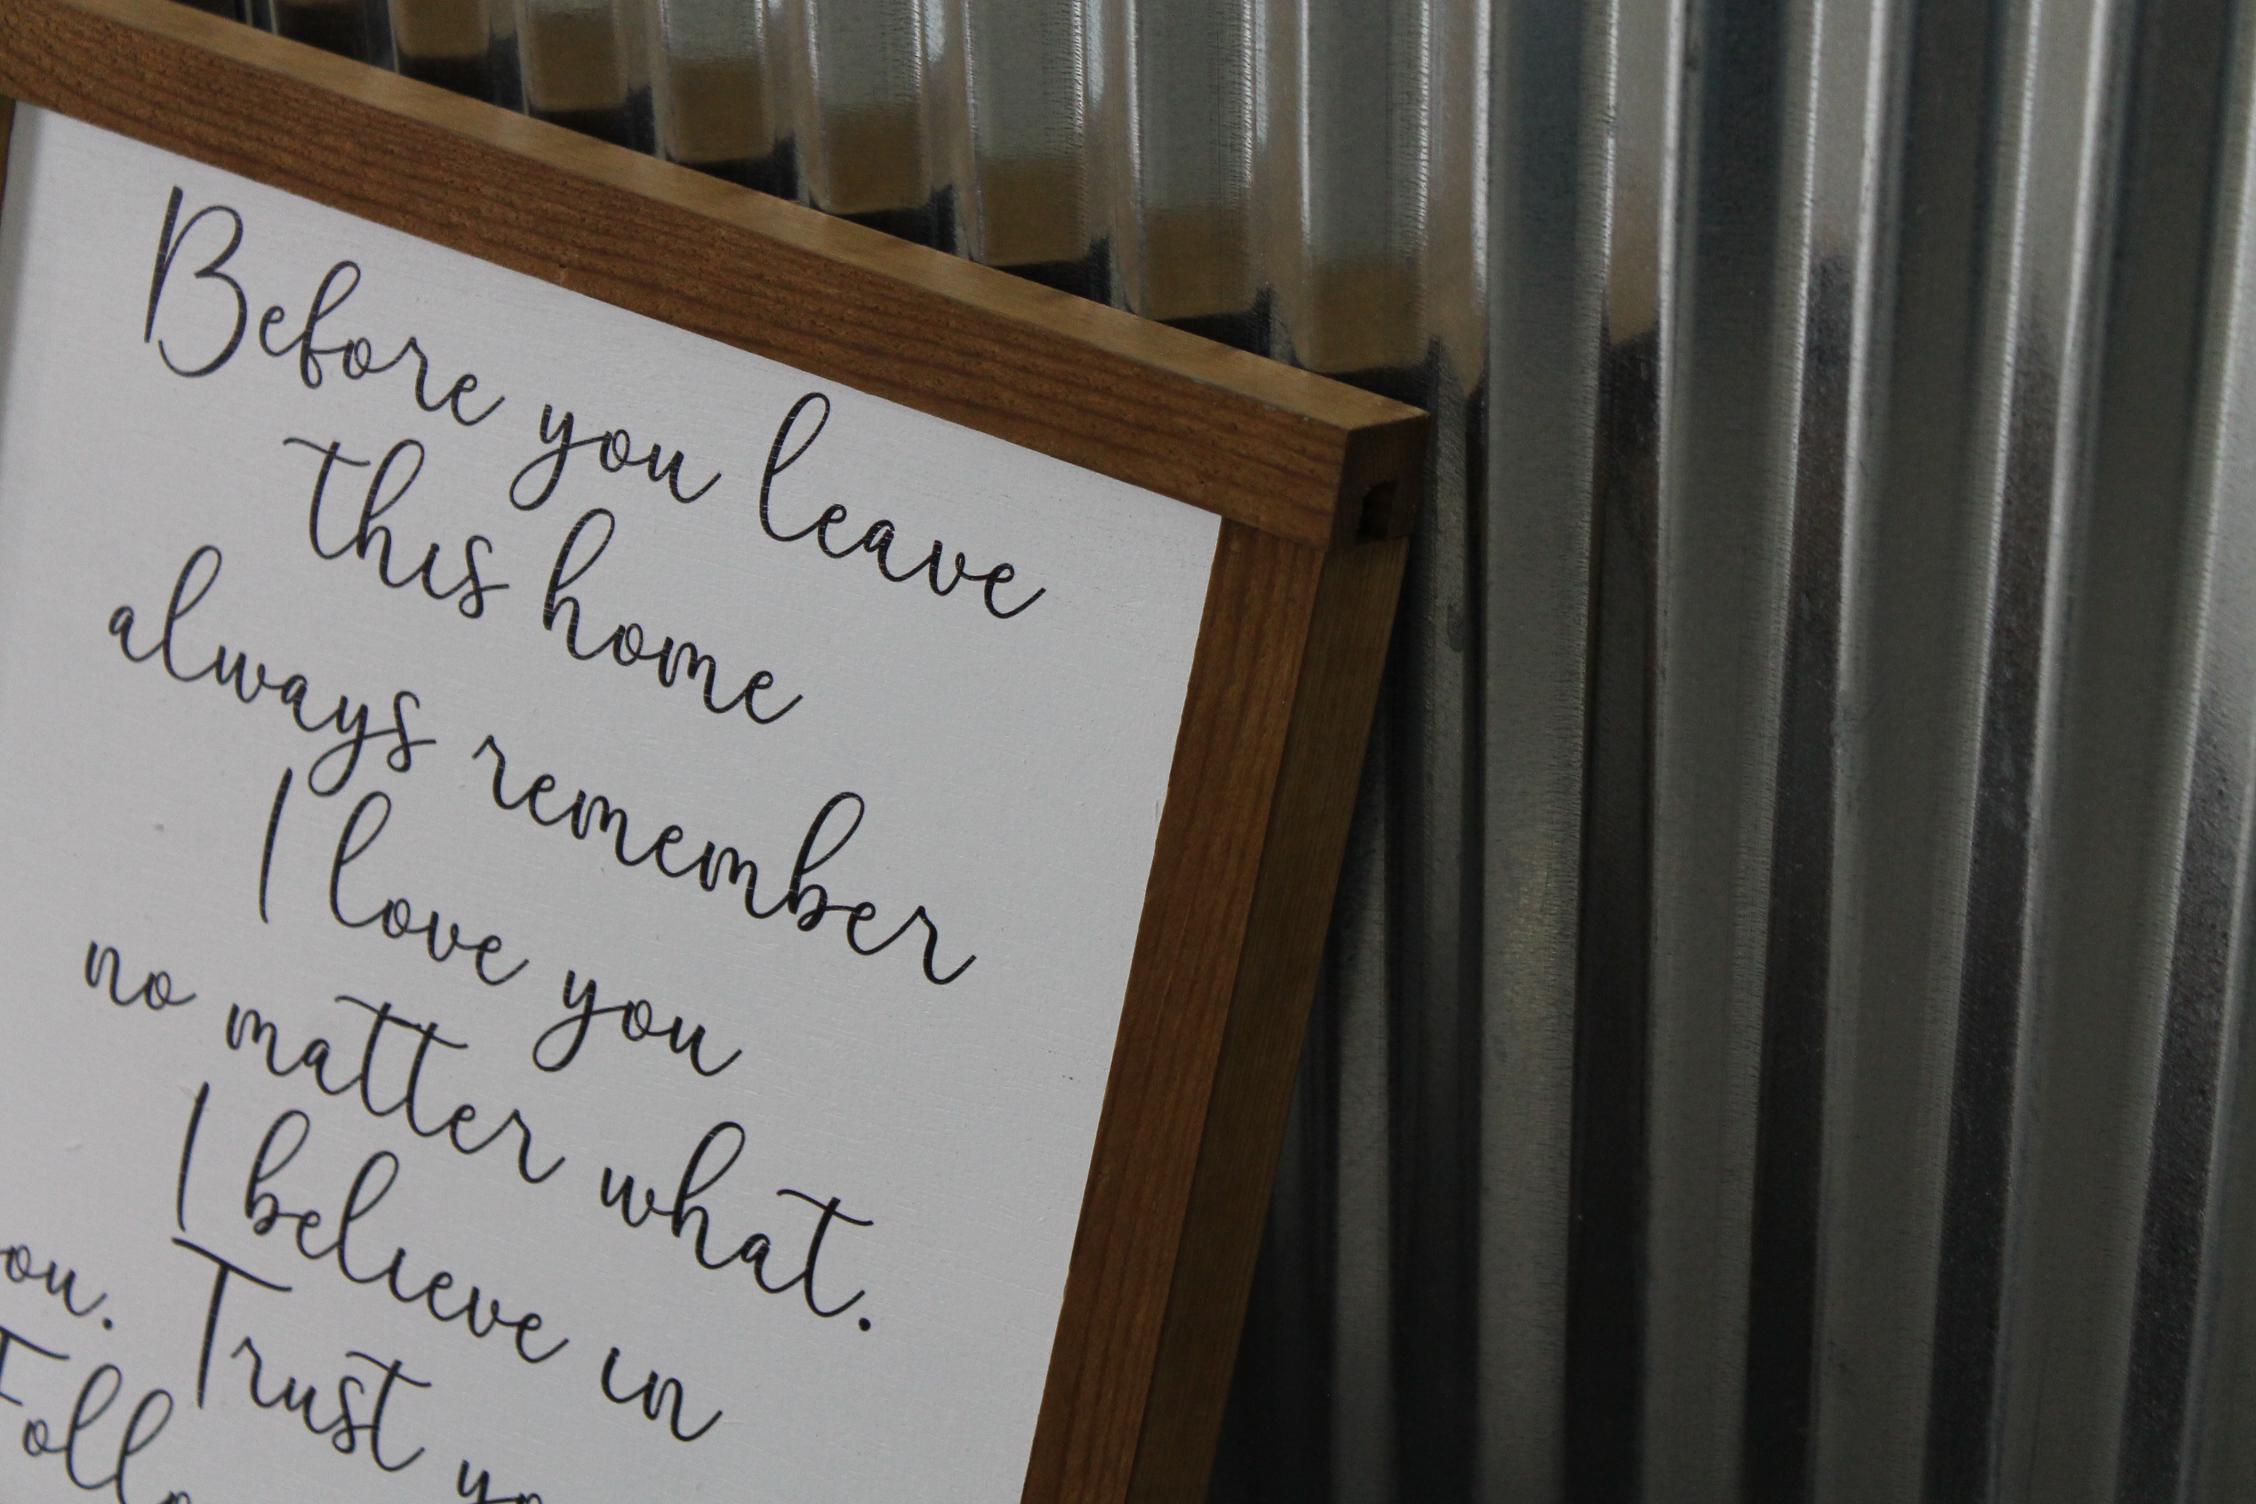 Before you leave
this home
always remember
I love you
no matter what.
I believe in
ou. Trust yo
Follo